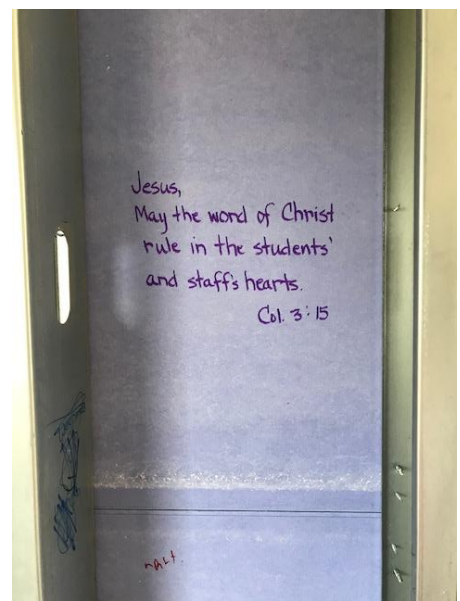 Jesus,
May the word of Christ
rule in the students'
and staff's hearts.
Col. 3:15